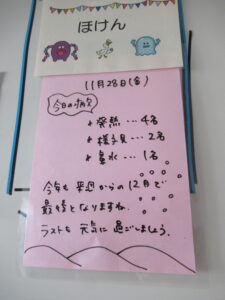 ほけん
11月28日(金)
今日の病欠
発熱…4名
様子見…2名
鼻水…1名
今年も来週からの12月で
最後となりますね.
ラストも元気に過ごしましょう.